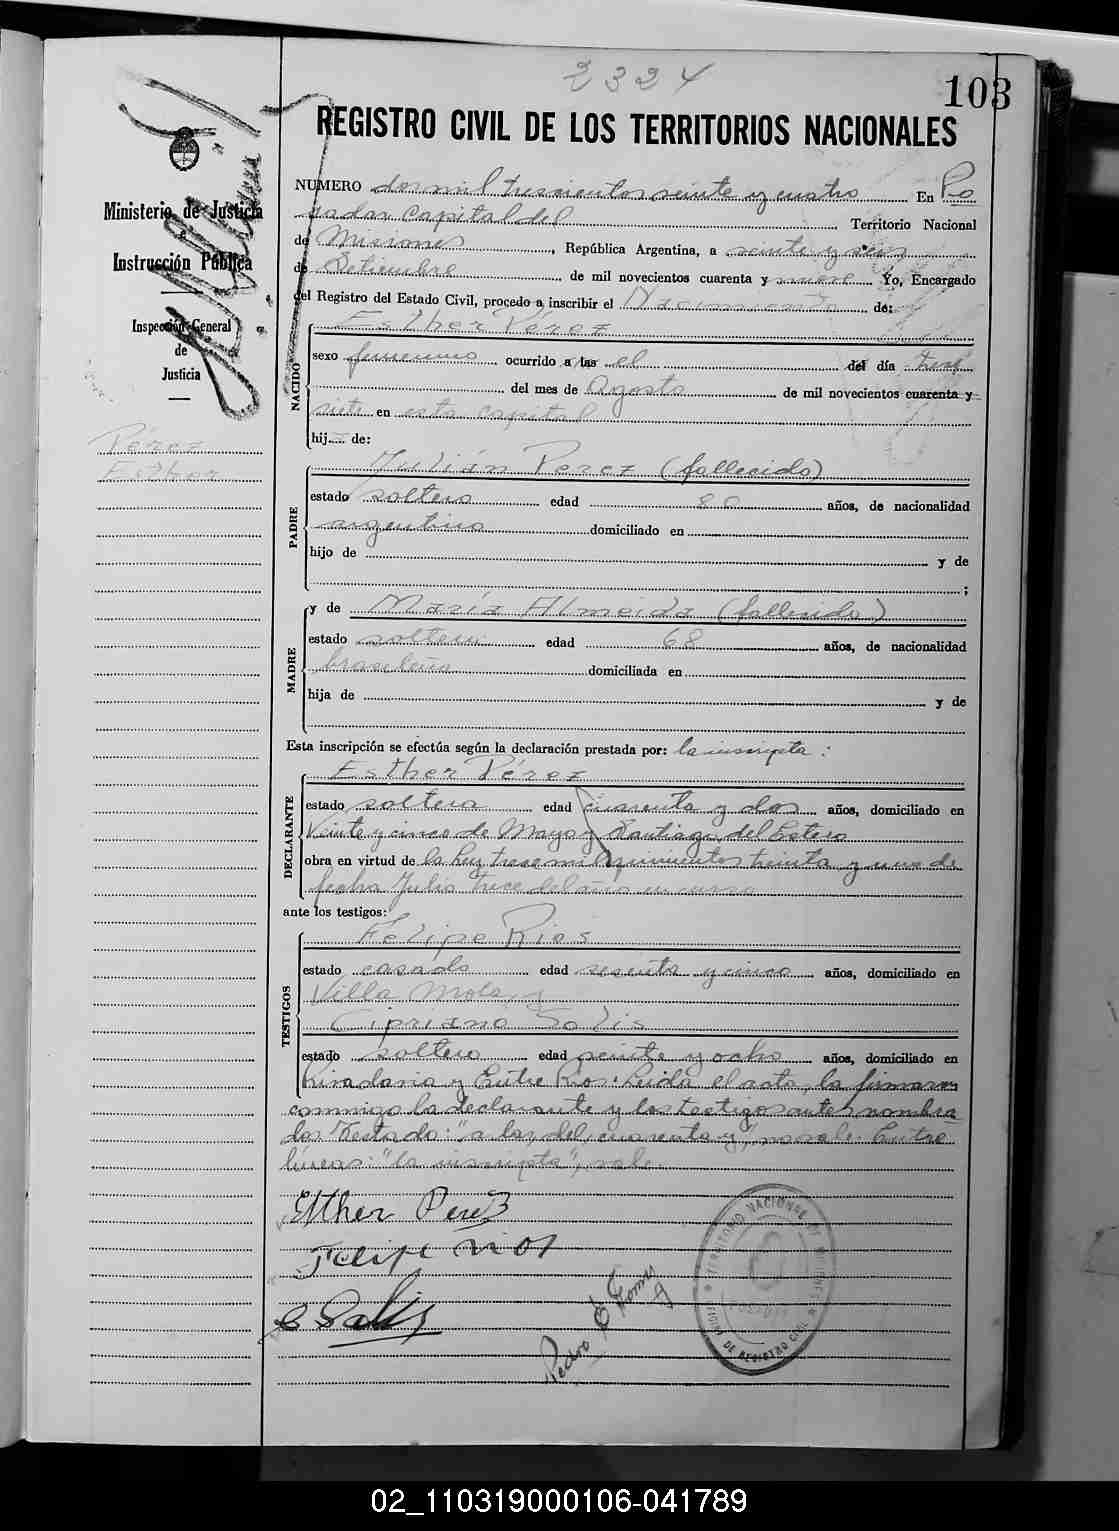 2324
103
REGISTRO CIVIL DE LOS TERRITORIOS NACIONALES
Ministerio de Justicia
e
Instrucción Pública
Inspección General
de
Justicia
Pérez
Esther
NUMERO dos mil trescientos veinte y cuatro En Po
sadas Capital del Territorio Nacional
de Misiones, República Argentina, a veinte y seis
de Setiembre de mil novecientos cuarenta y nueve Yo, Encargado
del Registro del Estado Civil, procedo a inscribir el Nacimiento de:
NACIDO
Esther Pérez
sexo femenino ocurrido a las el del día tres
del mes de Agosto de mil novecientos cuarenta y
siete en esta capital
hij de:
PADRE
Julián Perez (fallecido)
estado soltero edad 80 años, de nacionalidad
argentino domiciliado en
hijo de y de
;
MADRE
y de María Almeida (fallecida)
estado soltera edad 68 años, de nacionalidad
brasileña domiciliada en
hija de y de
Esta inscripción se efectúa según la declaración prestada por: la inscripta:
DECLARANTE
Esther Pérez
estado soltera edad cuarenta y dos años, domiciliado en
Veinte y cinco de Mayo y Santiago del Estero
obra en virtud de la Ley trece mil quinientos treinta y uno de
fecha Julio trece del año en curso
ante los testigos:
TESTIGOS
Felipe Rios
estado casado edad sesenta y cinco años, domiciliado en
Villa Mola, y
Cipriano Solis
estado soltero edad veinte y ocho años, domiciliado en
Rivadavia y Entre Rios. Leida el acta, la firmaron
conmigo la declarante y los testigos antes nombra
dos. Testado: "a las, del, cuarenta y", no vale. Entre
lineas: "la inscripta", vale.
Esther Perez
Felipe rios
C Solis
Pedro
TERRITORIO NACIONAL DE MISIONES
POSADAS
OFICINA DE REGISTRO CIVIL
02_110319000106-041789